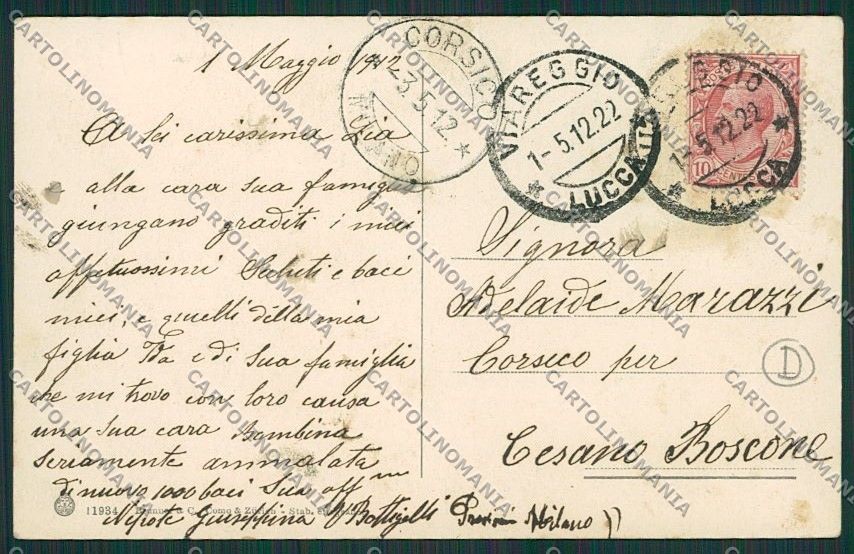 1 Maggio 1912
A Lei carissima Zia
e alla cara sua famiglia
giungano graditi i miei
affettuossimi Saluti e baci
miei, e quelli della mia
figlia Ida e di sua famiglia
che mi trovo con loro causa
una sua cara Bambina
seriamente ammalata
di nuovo 1000 baci Sua aff
Nipote Giuseppina Bottigelli
CORSICO
23.5.12
MILANO
VIAREGGIO
1-5.12.22
LUCCA
1-5.12.22
LUCCA
10
Signora
Adelaide Marazzi
Corsico per
D
Cesano Boscone
Milano
11934
Como & Zürich - Stab.
CARTOLINOMANIA